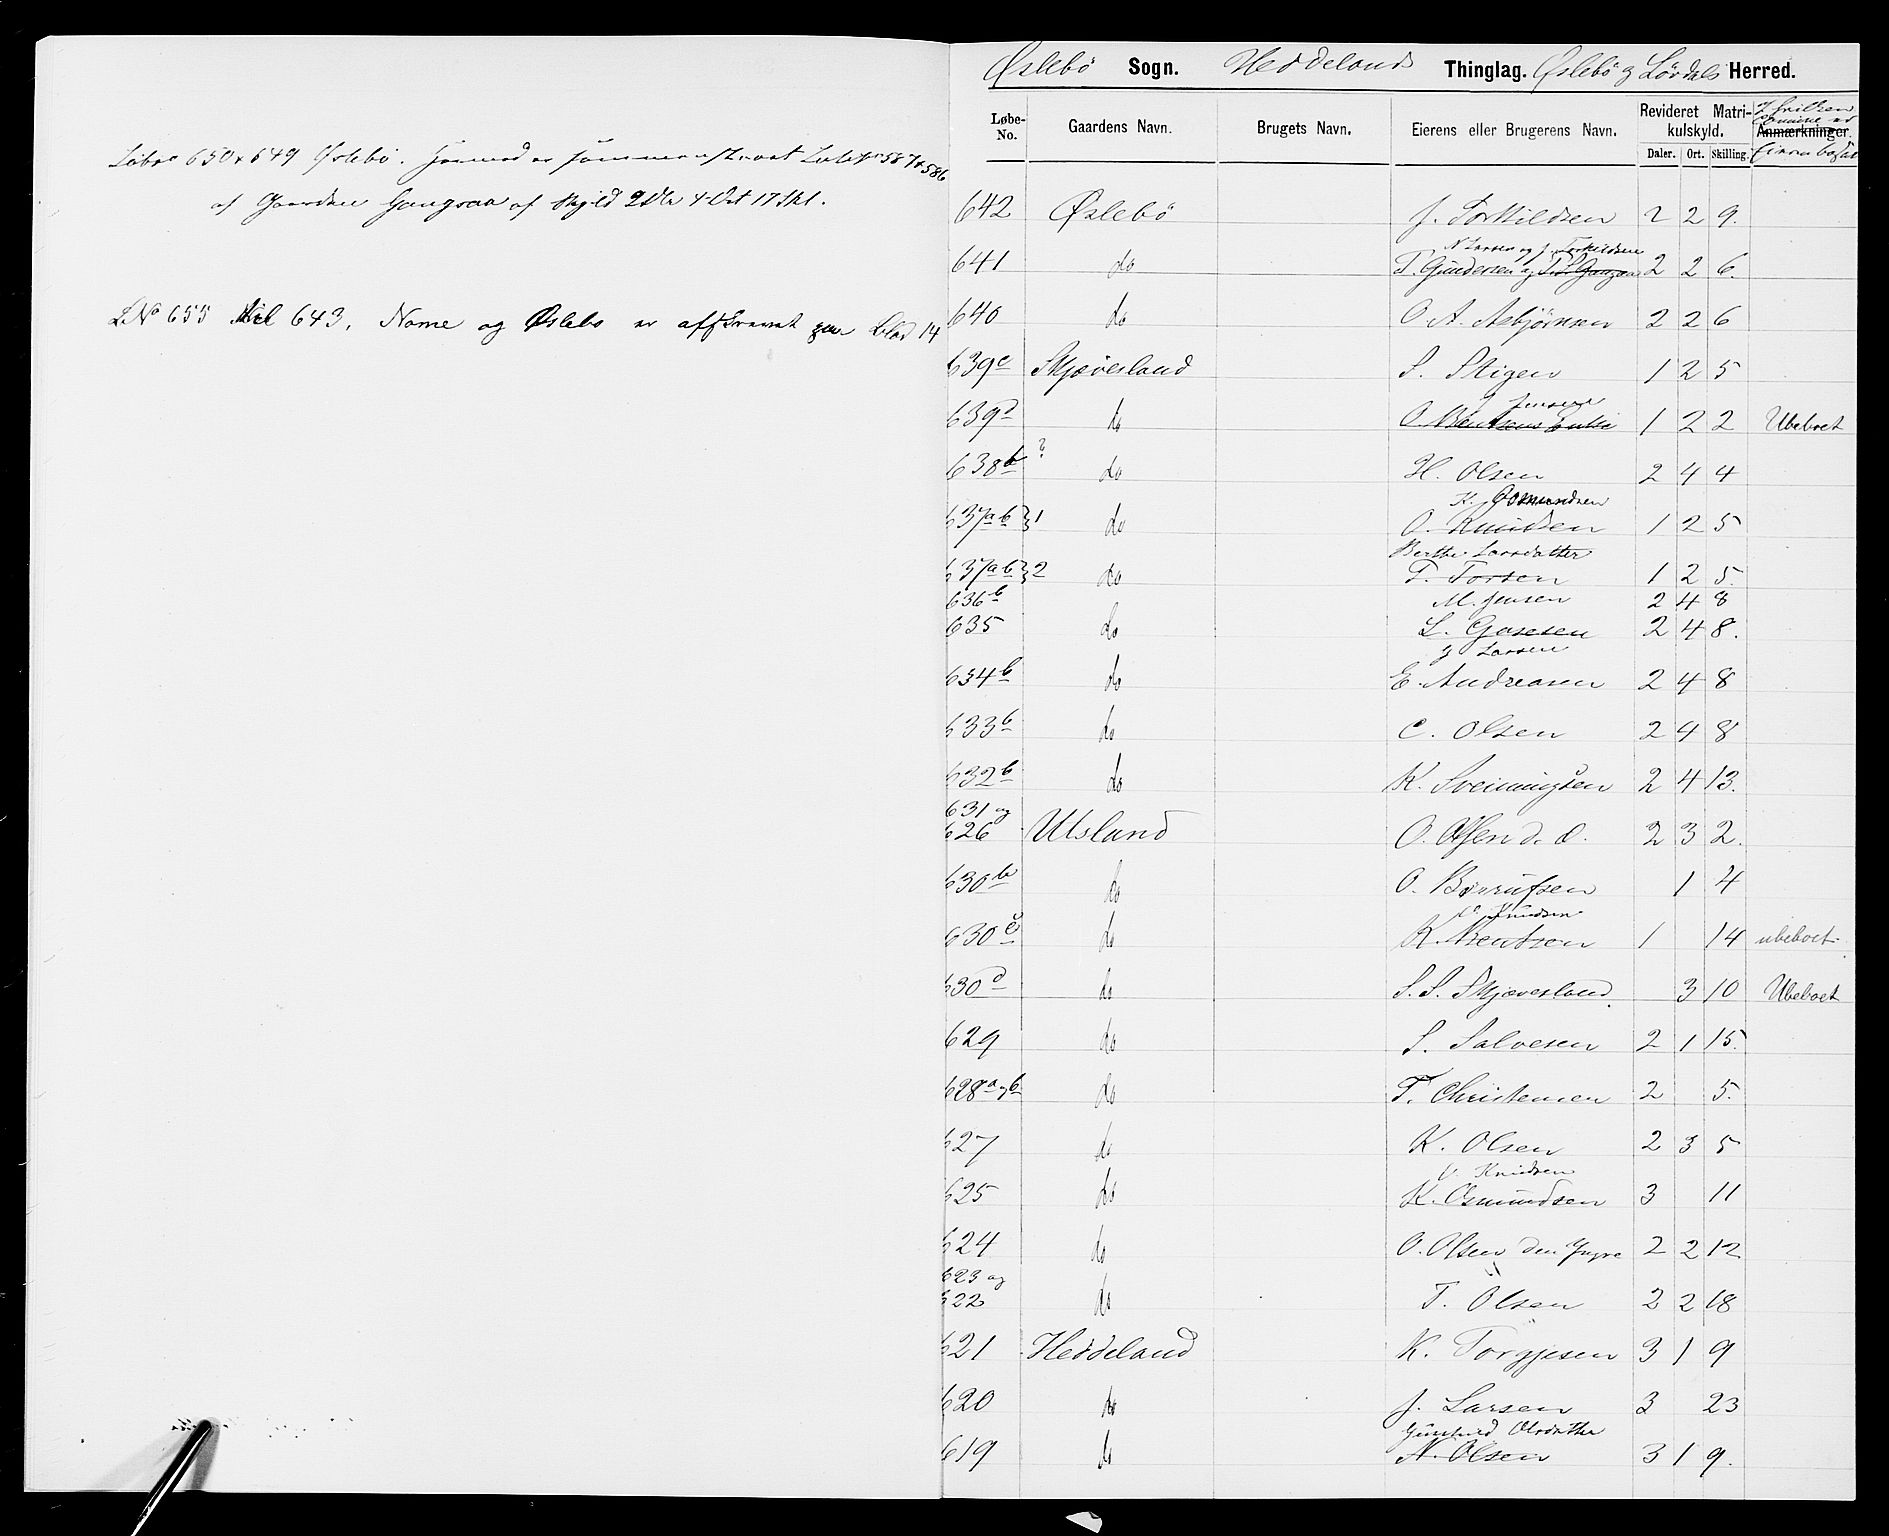 Løbno 650 & 649 Øslebö. Hermed er sammenskrevet Løbeno 587 & 586
af Gaarden Gangsaa af Skjyld 2 Dlr 4 Ort 17 Skl.
LNo 655 til 643, Nome og Øslebø er afskrevet paa Blad 14
Øslebö Sogn. Heddelands Thinglag. Øslebö og Løvdals Herred.
Løbe-No. Gaardens Navn. Brugets Navn. Eierens eller Brugerens Navn. Revideret Matrikulskyld. Anmærkninger.
Daler. Ort. Skilling.
642 Øslebö J. Torkildsen 2 2 9.
N Larsen og J. Torkildsen
641 do T. Gundersen og 2 2 6.
640 do O. A. Asbjørnsen 2 2 6
639c Skjævesland S. Stigen 1 2 5
J Jensen
639d do O. Bentsens Enke 1 2 2 Ubeboet
638b ? do H. Olsen 2 4 4
K. Osmundsen
637a b 1 do O. Knudsen 1 2 5
Berthe Larsdatter
637a b 2 do T. Torsen 1 2 5.
636b M. Jensen 2 4 8
635 do L. Gasesen 2 4 8.
J Larsen
634b do E. Andreasen 2 4 8
633b do C. Olsen 2 4 8
632b do K. Sveinungsen 2 4 13.
631 og
626 Ulsland O. Olsen d. Æ. 2 3 2.
630b do O. Bernufsen 1 4
O Knudsen
630c do K. Bentsen 1 14 ubeboet
630d do S. S. Skjævesland. 3 10 Ubeboet
629 do S. Salvesen 2 1 15.
628a og b do T. Christensen 2 5.
627 do K. Olsen 2 3 5
O Knudsen
625 do K. Osmundsen 3 11
624 do O. Olsen den Yngre 2 2 12
623 og
622 do T. Olsen 2 2 18
621 Heddeland K. Torgjesen 3 1 9
620 do J. Larsen 3 23
Gunhild Olsdatter
619 do N. Olsen 3 1 9.